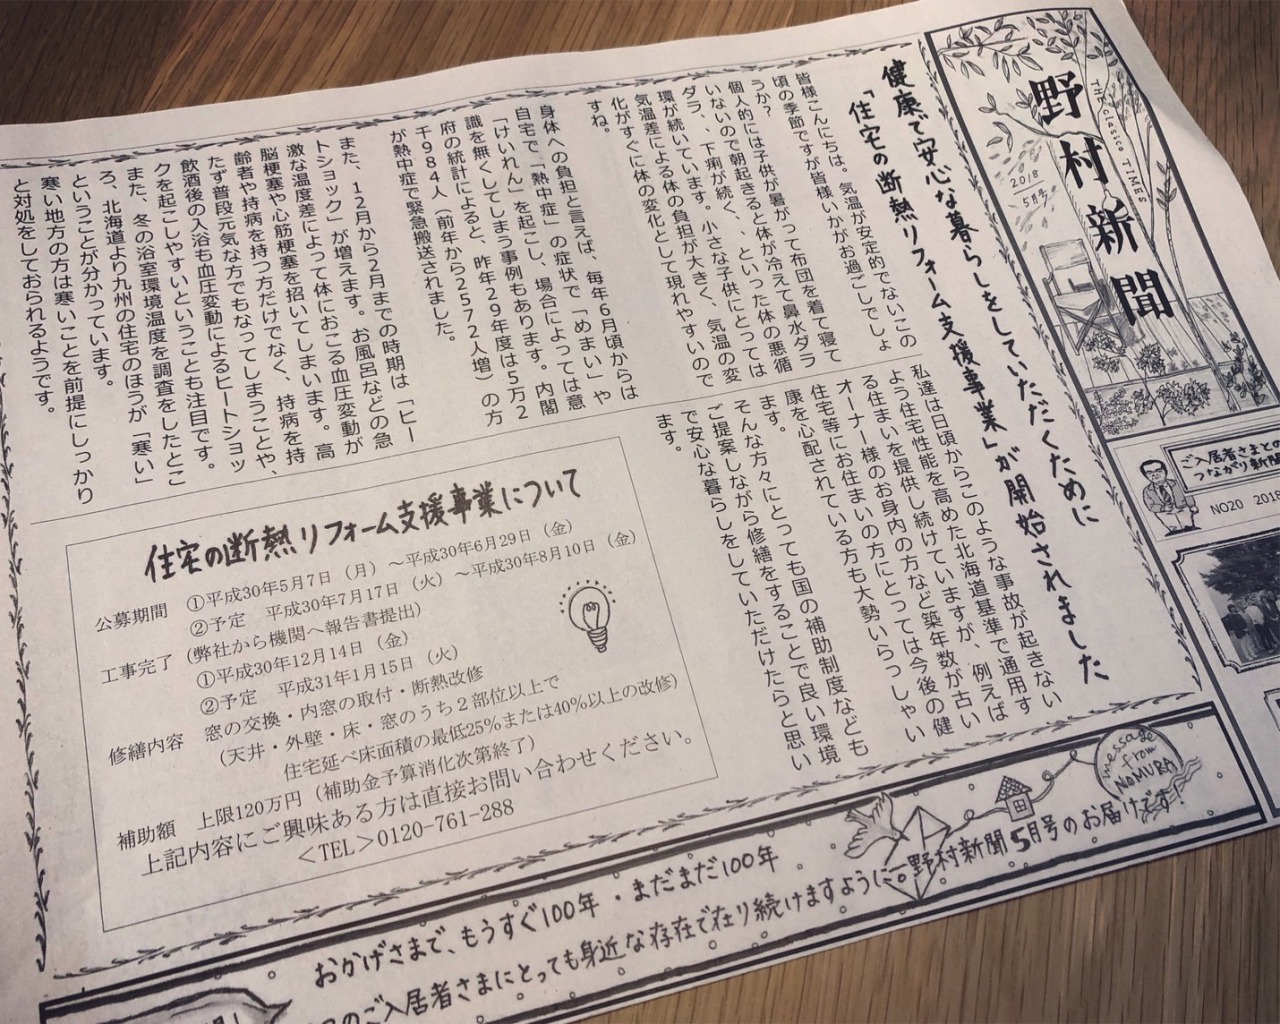 野村新聞
THE Clasico TIMES
2018
5月号
ご入居者さまとの
つながり新聞
NO20 2018
健康で安心な暮らしをしていただくために
「住宅の断熱リフォーム支援事業」が開始されました
皆様こんにちは。気温が安定的でないこの
頃の季節ですが皆様いかがお過ごしでしょ
うか？
個人的には子供が暑がって布団を着て寝て
いないので朝起きると体が冷えて鼻水ダラ
ダラ、、下痢が続く、、といった体の悪循
環が続いています。小さな子供にとっては
気温差による体の負担が大きく、気温の変
化がすぐに体の変化として現れやすいので
すね。
身体への負担と言えば、毎年6月頃からは
自宅で「熱中症」の症状で「めまい」や
「けいれん」を起こし、場合によっては意
識を無くしてしまう事例もあります。内閣
府の統計によると、昨年29年度は5万2
千984人（前年から2572人増）の方
が熱中症で緊急搬送されました。
また、12月から2月までの時期は「ヒー
トショック」が増えます。お風呂などの急
激な温度差によって体におこる血圧変動が
脳梗塞や心筋梗塞を招いてしまいます。高
齢者や持病を持つ方だけでなく、持病を持
たず普段元気な方でもなってしまうことや、
飲酒後の入浴も血圧変動によるヒートショッ
クを起こしやすいということも注目です。
また、冬の浴室環境温度を調査をしたとこ
ろ、北海道より九州の住宅のほうが「寒い」
ということが分かっています。
寒い地方の方は寒いことを前提にしっかり
と対処をしておられるようです。
私達は日頃からこのような事故が起きない
よう住宅性能を高めた北海道基準で通用す
る住まいを提供し続けていますが、例えば
オーナー様のお身内の方など築年数が古い
住宅等にお住まいの方にとっては今後の健
康を心配されている方も大勢いらっしゃい
ます。
そんな方々にとっても国の補助制度なども
ご提案しながら修繕をすることで良い環境
で安心な暮らしをしていただけたらと思い
ます。
住宅の断熱リフォーム支援事業について
公募期間 ①平成30年5月7日（月）～平成30年6月29日（金）
②予定 平成30年7月17日（火）～平成30年8月10日（金）
工事完了（弊社から機関へ報告書提出）
①平成30年12月14日（金）
②予定 平成31年1月15日（火）
修繕内容 窓の交換・内窓の取付・断熱改修
（天井・外壁・床・窓のうち2部位以上で
住宅延べ床面積の最低25%または40%以上の改修）
補助額 上限120万円（補助金予算消化次第終了）
上記内容にご興味ある方は直接お問い合わせください。
＜TEL＞0120-761-288
message
from
NOMURA
おかげさまで、もうすぐ100年・まだまだ100年
のご入居者さまにとっても身近な存在で在り続けますように。野村新聞5月号のお届けです！